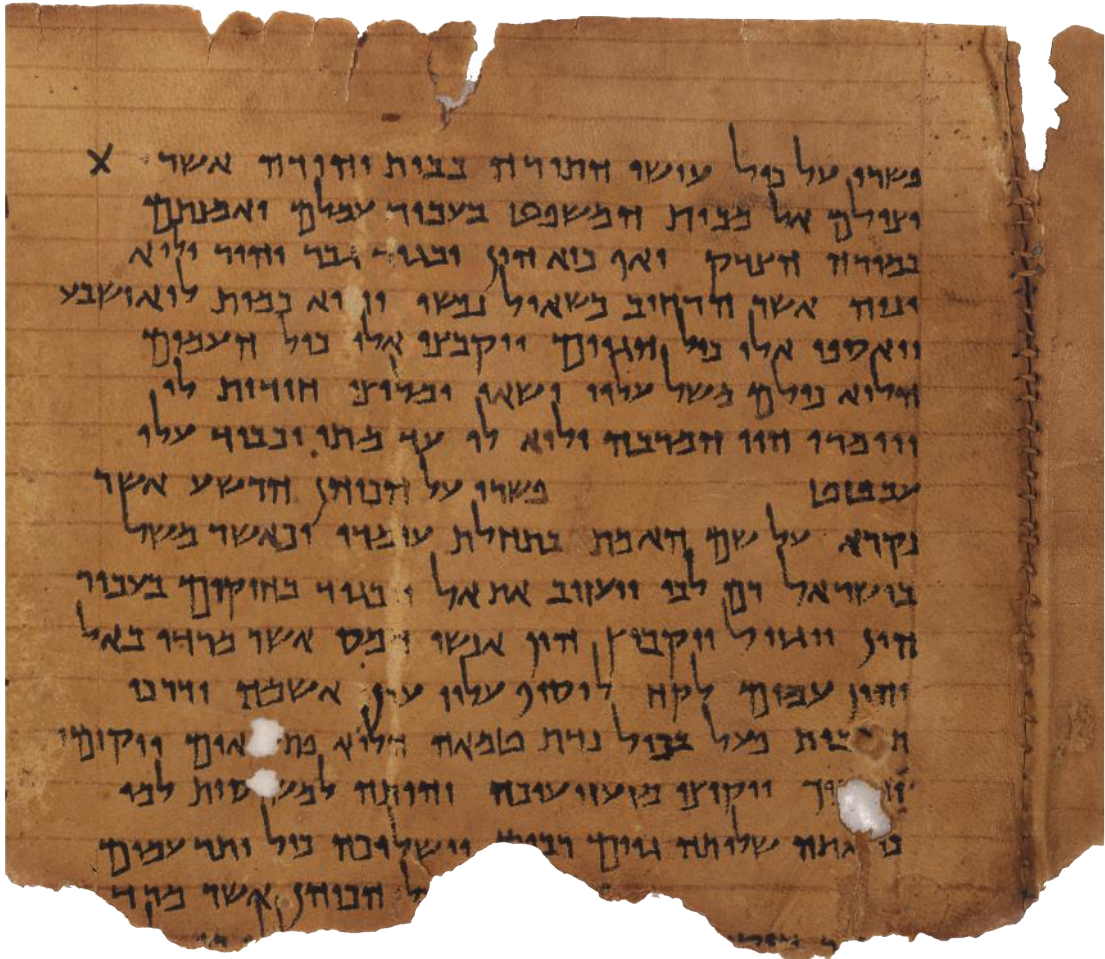 פשרו על כול עושי התורה בבית יהודה אשר X
יצילם אל מבית המשפט בעבור עמלם ואמנתם
במורה הצדק ואף כיא הון יבגוד גבר יהיר ולוא
ינוה אשר הרחיב כשאול נפשו והוא כמות לוא ישבע
ויאספו אלו כול הגוים ויקבצו אלו כול העמים
הלוא כולם משל עליו ישאו ומליצי חידות לו
ויומרו הוי המרבה ולוא לו עד מתי יכביד עלו
עבטט פשרו על הכוהן הרשע אשר
נקרא על שם האמת בתחלת עומדו וכאשר משל
בישראל רם לבו ויעזוב את אל ויבגוד בחוקים בעבור
הון ויגזול ויקבוץ הון אנשי חמס אשר מרדו באל
והון עמים לקח לוסיף עליו עון אשמה ודרכי
פעל בכול נדת טמאה הלוא פתאום ויקומו
ויקיצו מזעזיעיכה והייתה למשיסות למו
כי אתה שלותה גוים רבים וישלוכה כול יתר עמים
הכוהן אשר מרד